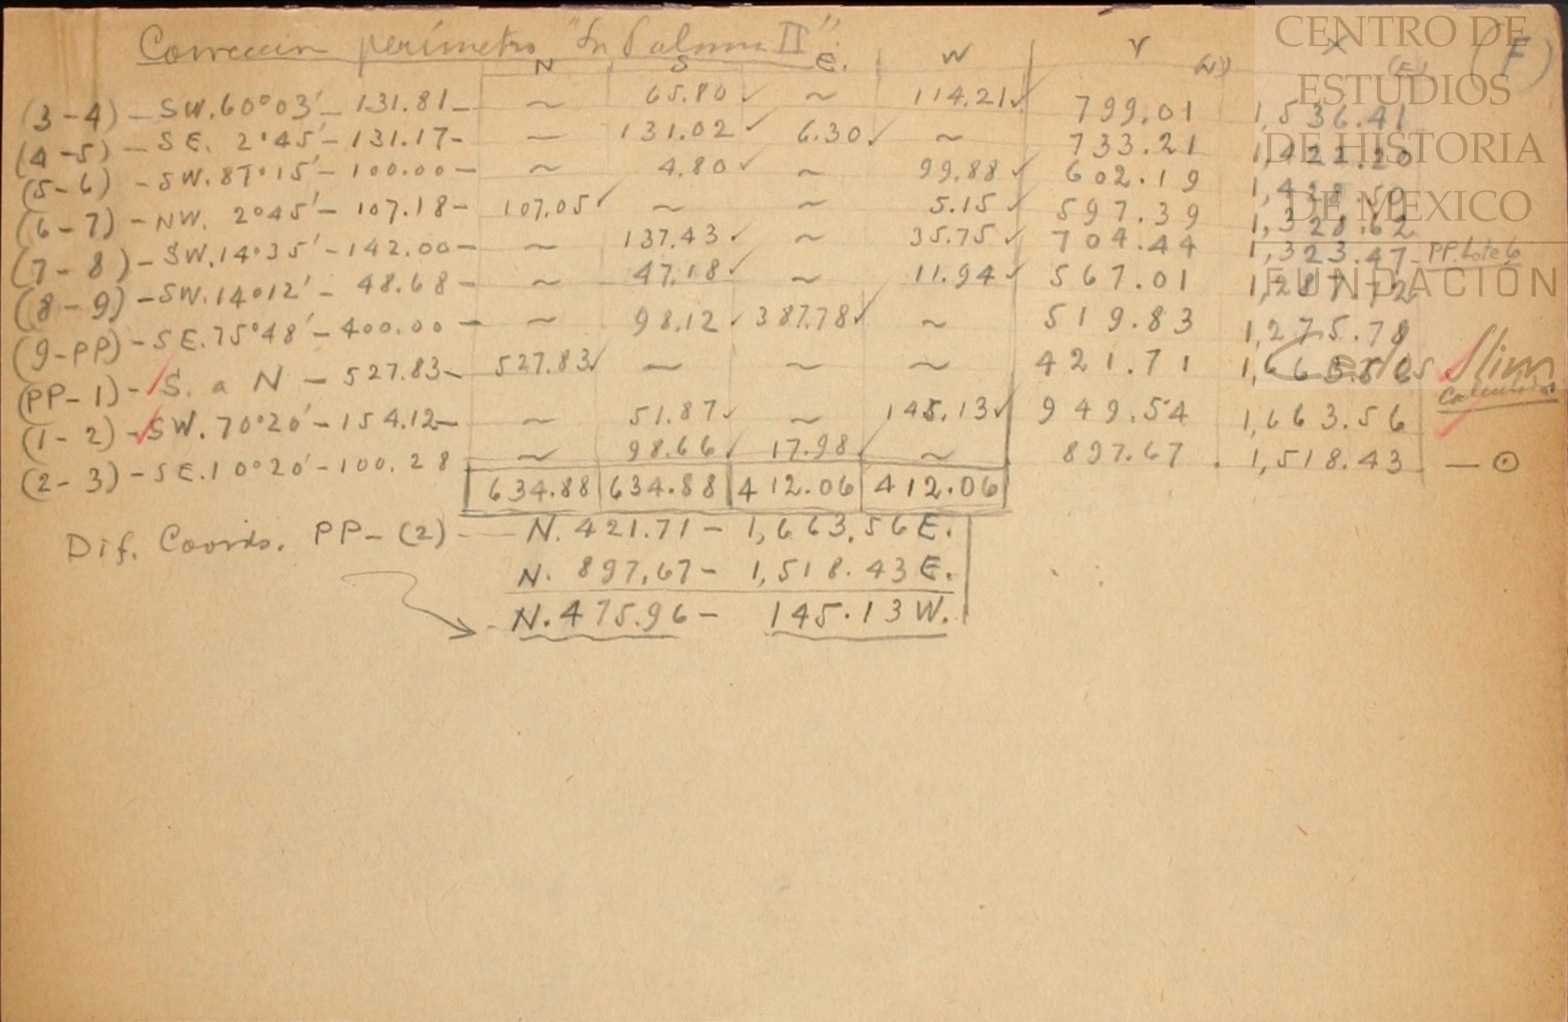 Corrección perímetro "La Paloma II" (F)
N S E. W Y (N) X (E)
(3-4) - SW. 60°03' - 131.81 - ~ 65.80 ✓ ~ 114.21 ✓ 799.01 1,536.41
(4-5) - SE. 2°45' - 131.17 - — 131.02 ✓ 6.30 ✓ ~ 733.21 1,422.20
(5-6) - SW. 87°15' - 100.00 - ~ 4.80 ✓ ~ 99.88 ✓ 602.19 1,428.50
(6-7) - NW. 2°45' - 107.18 - 107.05 ✓ ~ ~ 5.15 ✓ 597.39 1,328.62
(7-8) - SW. 14°35' - 142.00 - ~ 137.43 ✓ ~ 35.75 ✓ 704.44 1,323.47 - PP. Lote 6
(8-9) - SW. 14°12' - 48.68 - ~ 47.18 ✓ ~ 11.94 ✓ 567.01 1,287.72
(9-PP) - SE. 75°48' - 400.00 - ~ 98.12 ✓ 387.78 ✓ ~ 519.83 1,275.78
(PP-1) - S. a N - 527.83 - 527.83 ✓ — ~ ~ 421.71 1,663.56 ✓
(1-2) - SW. 70°20' - 154.12 - ~ 51.87 ✓ ~ 145.13 ✓ 949.54 1,663.56 ✓
(2-3) - SE. 10°20' - 100.28 - ~ 98.66 ✓ 17.98 ✓ ~ 897.67 . 1,518.43 — ⊙
634.88 634.88 412.06 412.06
Dif. Coords. PP - (2) — N. 421.71 - 1,663.56 E.
N. 897.67 - 1,518.43 E.
N. 475.96 - 145.13 W.
CENTRO DE
ESTUDIOS
DE HISTORIA
DE MEXICO
FUNDACIÓN
Carlos Slim